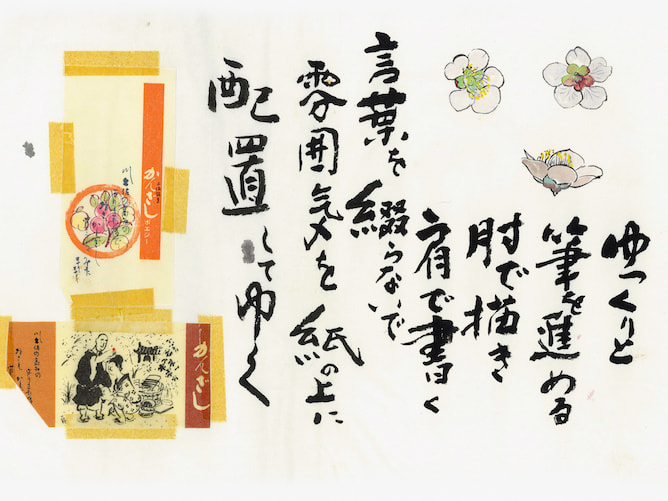 ゆっくりと
筆を進める
肘で描き
肩で書く
言葉を
綴らないで
雰囲気を
紙の上に
配置してゆく
かんざし
ポエジー
かんざし